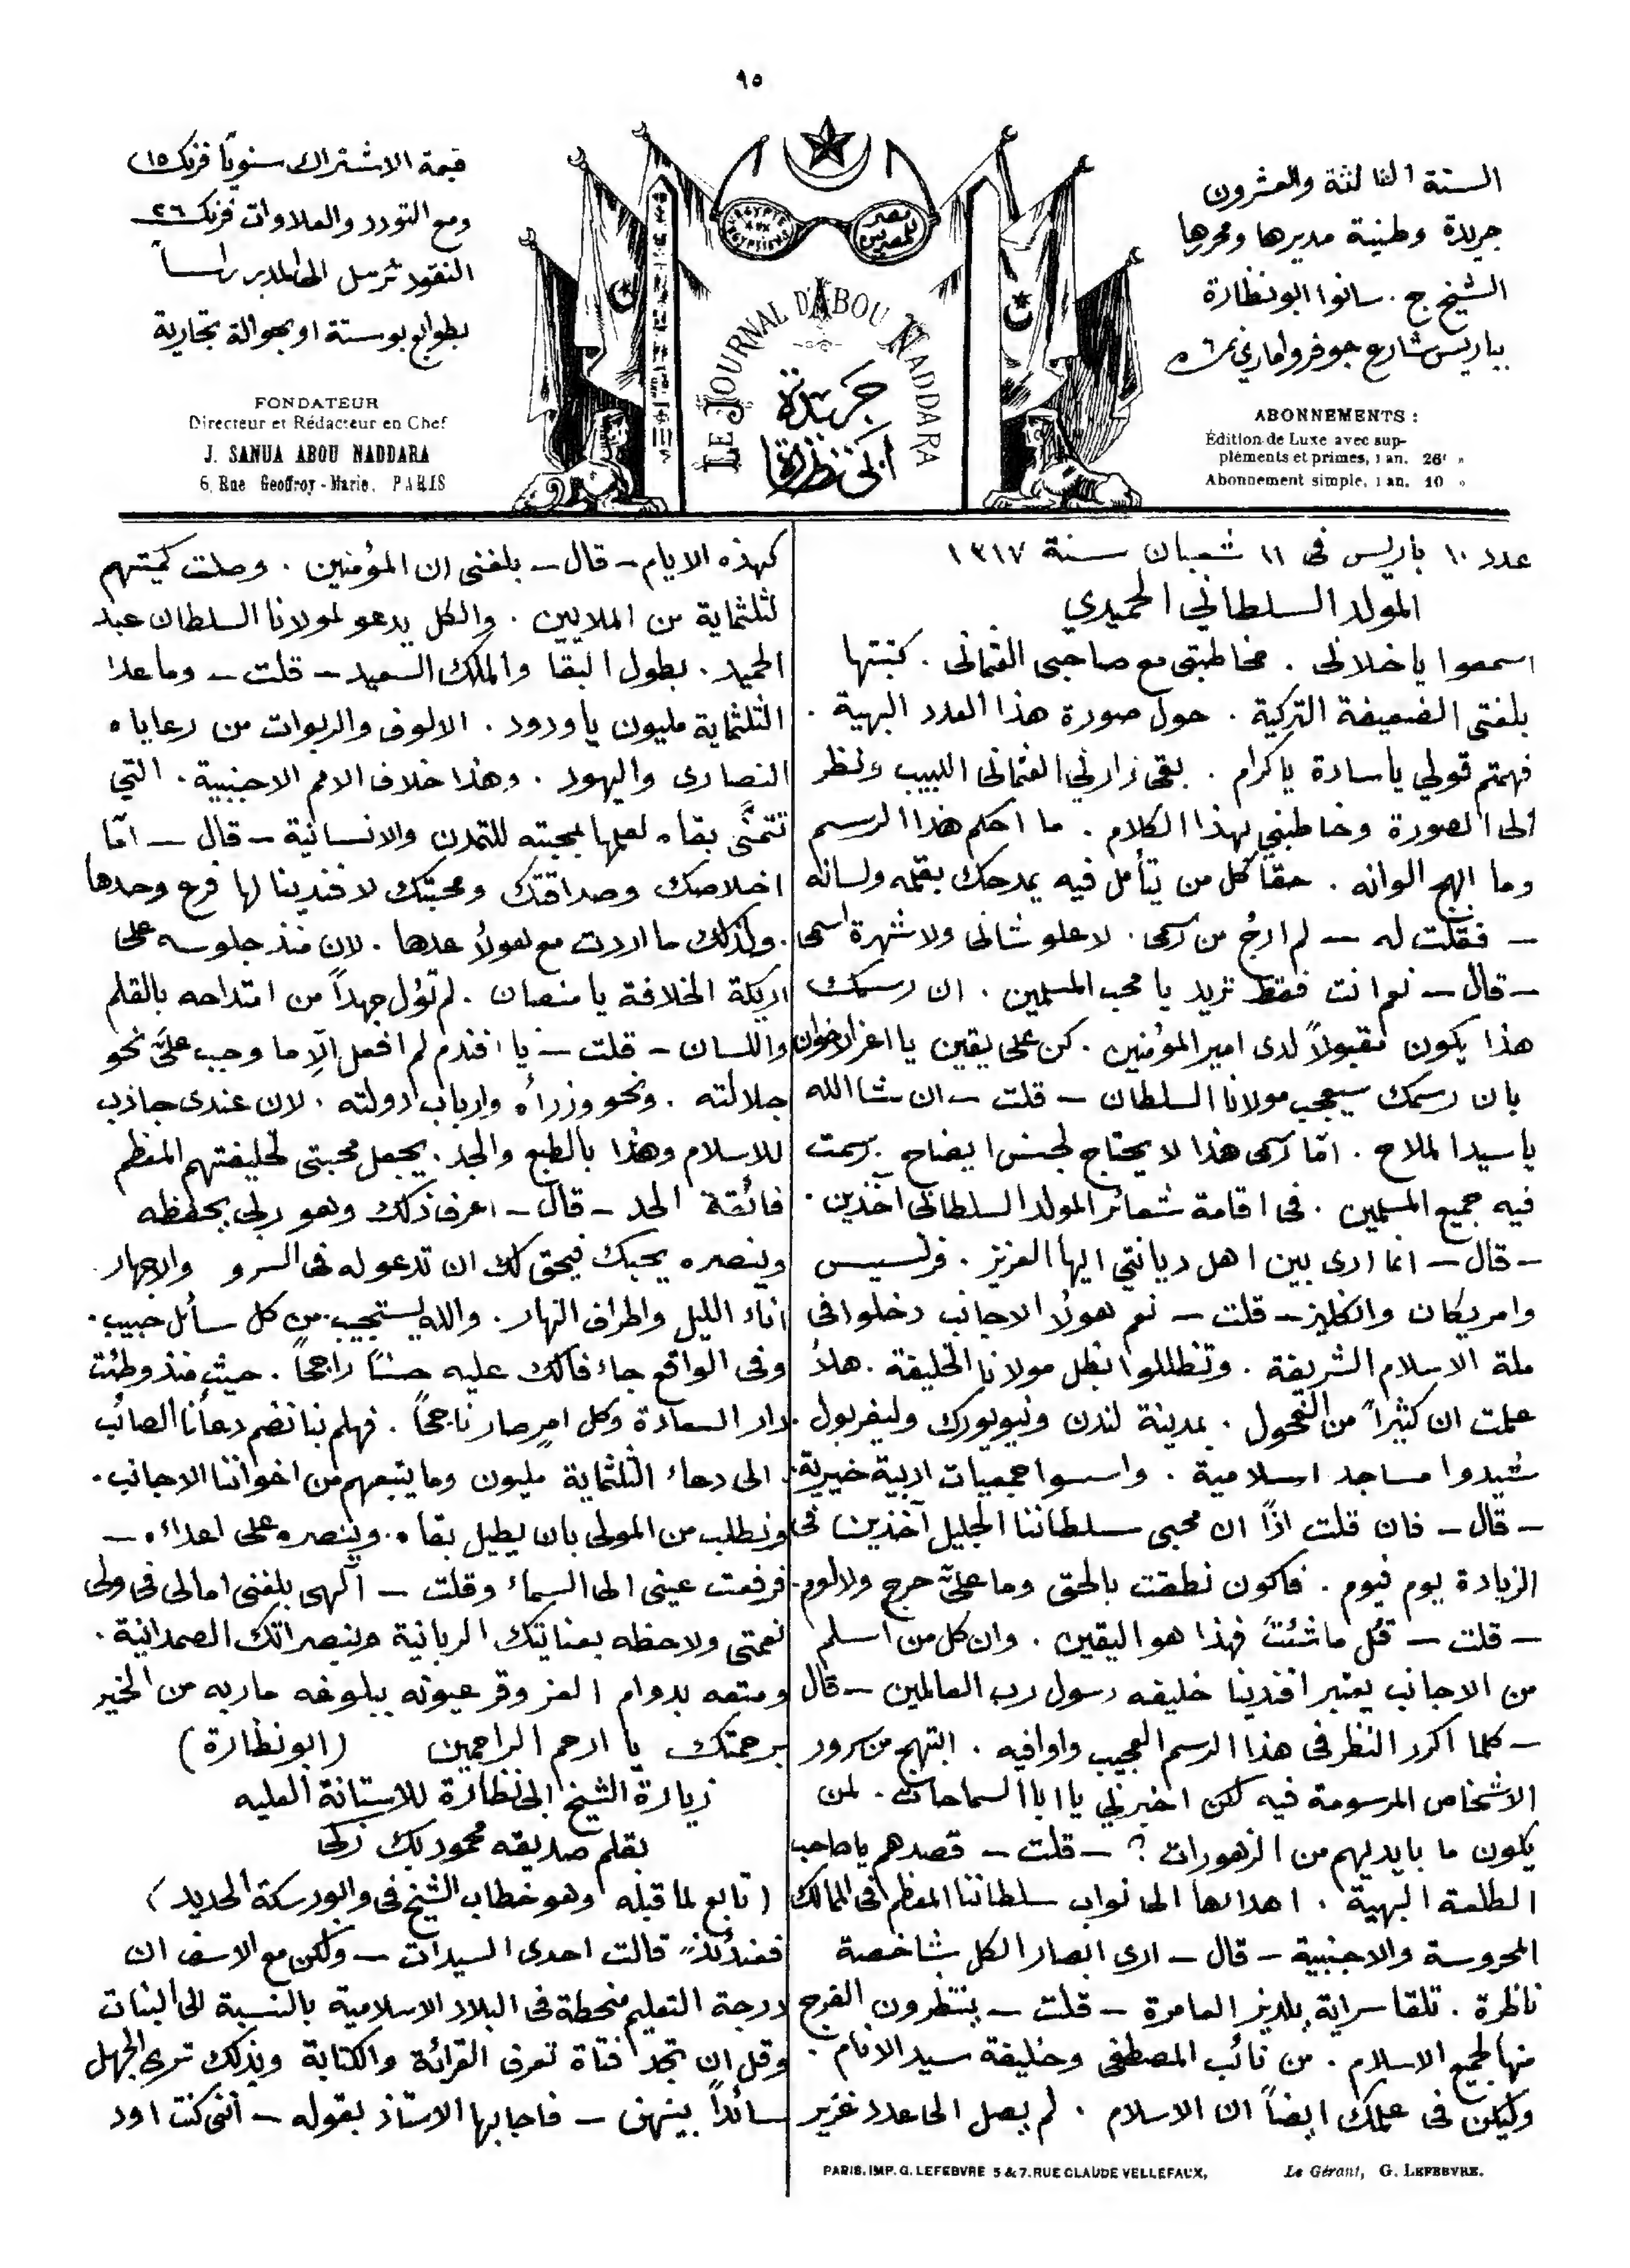 ٩٥
السنة الثالثة والعشرون
جريدة وطنية مديرها ومحررها
الشيخ ج. سانوا ابونظارة
بباريس شارع جوفروا ماري نمرة ٦
ABONNEMENTS :
Édition de Luxe avec sup-
pléments et primes, 1 an. 26f »
Abonnement simple, 1 an. 10 »
EGYPTE AUX EGYPTIENS
مصر للمصريين
LE JOURNAL D'ABOU NADDARA
جريدة
ابى نظارة
قيمة الاشتراك سنويّا فرنك ١٥
ومع التودد والعلاوات فرنك ٢٦
النقود ترسل الى المدير راساً
بطوابع بوستة او بحوالة تجارية
FONDATEUR
Directeur et Rédacteur en Chef
J. SANUA ABOU NADDARA
6, Rue Geoffroy-Marie, PARIS
عدد ١٠ باريس فى ١١ شعبان سنة ١٣١٧
المولد السلطاني الحميدي
اسمعوا ياخلانى . مخاطبتى مع صاحبى العثمانى . كتبتها
بلغتى الضعيفة التركية . حول صورة هذا العدد البهية .
فهمتم قولي ياسادة ياكرام . بقى زارني العثمانى اللبيب ونظر
الى الصورة وخاطبني بهذا الكلام . ما احكم هذا الرسم
وما ابهج الوانه . حقا كل من يتأمل فيه يمدحك بقلمه ولسانه
— فقلت له — لم ارجُ من رسمى . لا علو شانى ولا شهرة اسمى .
— قال — نعم انت فقط تريد يا محب المسلمين . ان رسمك
هذا يكون مقبولاً لدى امير المؤمنين . كن على يقين يا اعز الاخوان
بان رسمك سيعجب مولانا السلطان — قلت — ان شا الله
ياسيد الملاح . امّا رسمى هذا لا يحتاج لجنس ايضاح . رسمت
فيه جميع المسلمين . فى اقامة شعائر المولد السلطانى آخذين .
— قال — انما ارى بين اهل ديانتي ايها العزيز . فرنسيس
وامريكان وانكليز — قلت — نعم هولاُ الاجانب دخلوا فى
ملة الاسلام الشريفة . وتظللوا بظل مولانا الخليفة . هلاُ
علمت ان كثيراً من الفحول . بمدينة لندن ونيويورك وليفربول .
شيدوا مساجد اسلامية . واسسوا جمعيات ادبية خيرية .
— قال — فان قلت اذاً ان محبى سلطاننا الجليل آخذين فى
الزيادة يوم فيوم . فاكون نطقت بالحق وما علىّ حرج ولا لوم .
— قلت — قل ماشئت فهذا هو اليقين . وان كل من اسلم
من الاجانب يعتبر افندينا خليفه رسول رب العالمين — قال
— كلما اكرر النظر فى هذا الرسم العجيب واوافيه . ابتهج من سرور
الاشخاص المرسومة فيه لكن اخبرني يا ابا السماحات . لمن
يكون ما بايديهم من الزهورات ؟ — قلت — قصدهم ياصاحب
الطلعة البهية . اهدائها الى نواب سلطاننا المعظم فى الممالك
المحروسة والاجنبية — قال — ارى ابصار الكل شاخصة
ناظرة . تلقا سراية يلديز العامرة — قلت — ينتظرون الفرج
منها لجميع الاسلام . من نائب المصطفى وخليفة سيد الانام .
وليكن فى علمك ايضاً ان الاسلام . لم يصل الى عدد غزير
كهذه الايام — قال — بلغنى ان المؤمنين . وصلت كميتهم
لثلثماية من الملايين . والكل يدعو لمولانا السلطان عبد
الحميد . بطول البقا والملك السعيد — قلت — وما عدا
الثلثماية مليون ياودود . الالوف والربوات من رعاياه
النصارى واليهود . وهذا خلاف الامم الاجنبية . التي
تتمنَّى بقاه لعلمها بمحبته للتمدن والانسانية — قال — امّا
اخلاصك وصداقتك ومحبتك لافندينا لها فرع وحدها
ولذلك ما اردت مع هولاُ عدها . لان منذ جلوسه على
اريكة الخلافة يا منصان . لم تؤل جهداً من امتداحه بالقلم
واللسان — قلت — يا افندم لم افعل الّا ما وجب علىَّ نحو
جلالته . ونحو وزراُه وارباب دولته . لان عندى جاذب
للاسلام وهذا بالطبع والجد . يجعل محبتى لخليفتهم المعظم
فائقة الحد — قال — اعرف ذلك وهو ربى يحفظه
وينصره يحبك فيحق لك ان تدعو له فى السر و والاجهار .
اناء الليل واطراف النهار . والله يستجيب من كل سائل حبيب .
وفى الواقع جاء فالك عليه حسنًا راجحاً . حيث منذ وطئت
دار السعادة وكل امرٍ صار ناجحاً . فهلم بنا نضم دعانا الصائب
الى دعاء الثلثماية مليون وما يتبعهم من اخواننا الاجانب .
ونطلب من المولى بان يطيل بقاه . وينصره على اعدائه —
فرفعت عينى الى السماء وقلت — آلهى بلغنى امالى فى ولى
نعمتى ولاحظه بعنايتك الربانية وبنصراتك الصمدانية .
ومتعه بدوام العز وقر عيونه ببلوغه ماربه من الخير
برحمتك يا ارحم الراحمين (ابونظارة)
زيارة الشيخ ابى نظارة للاستانة العليه
بقلم صديقه محمود بك زكى
( تابع لما قبله وهو خطاب الشيخ فى والبورسكة الحديد )
فعندئذٍ قالت احدى السيدات — ولكن مع الاسف ان
درجة التعليم منحطة فى البلاد الاسلامية بالنسبة الى البنات
وقل ان تجد فتاة تعرف القرائة والكتابة وبذلك ترى الجهل
سائداً بينهن — فاجابها الاستاذ بقوله — اننى كنت اود
PARIS. IMP. G. LEFEBVRE 5 & 7. RUE CLAUDE VELLEFAUX.
Le Gérant, G. LEFEBVRE.